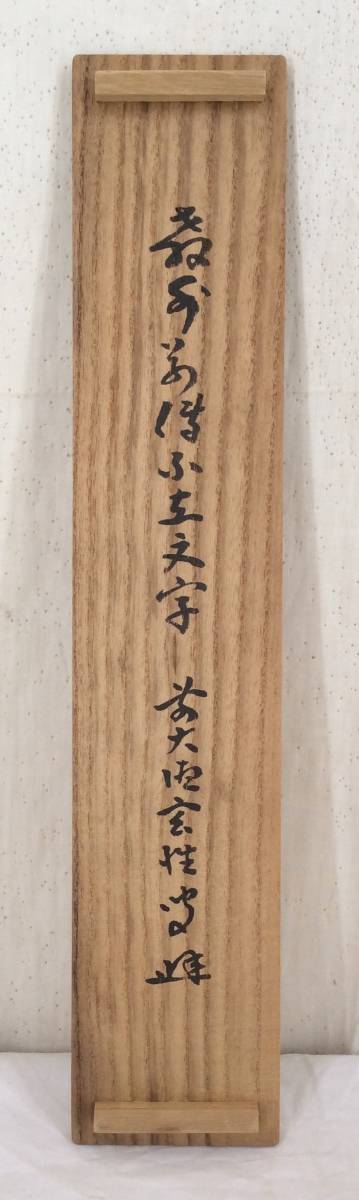 教外別傳不立文字 前大德玄性